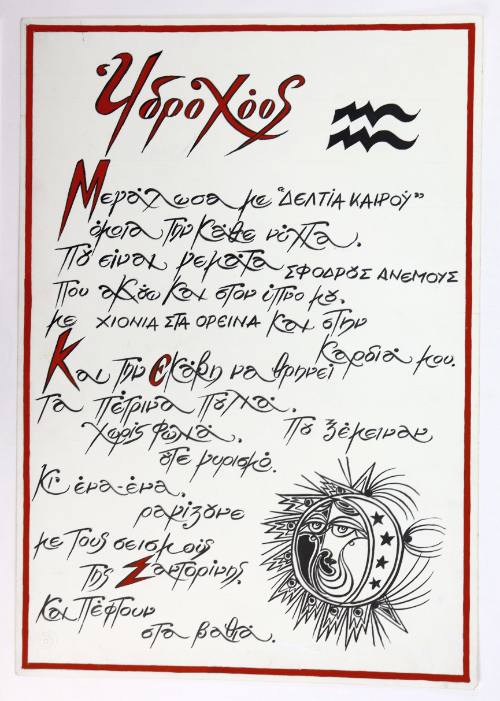 Ὑδροχόος
Μεγάλωσα με "ΔΕΛΤΙΑ ΚΑΙΡΟΥ"
όμοια την κάθε νύχτα.
Που είναι γεμάτα ΣΦΟΔΡΟΥΣ ΑΝΕΜΟΥΣ
Που ακούω και στον ύπνο μου.
με ΧΙΟΝΙΑ ΣΤΑ ΟΡΕΙΝΑ και στην
καρδιά μου.
Και την Εκάβη να θρηνεί
Τα πέτρινα
Χωρίς φωνά. Που ξέμειναν
ούτε γυρισμό.
Κι' ένα-ένα,
ραγίζουνε
με τους σεισμούς
της Σαντορίνης.
Και πέφτουν
στα βαθιά.